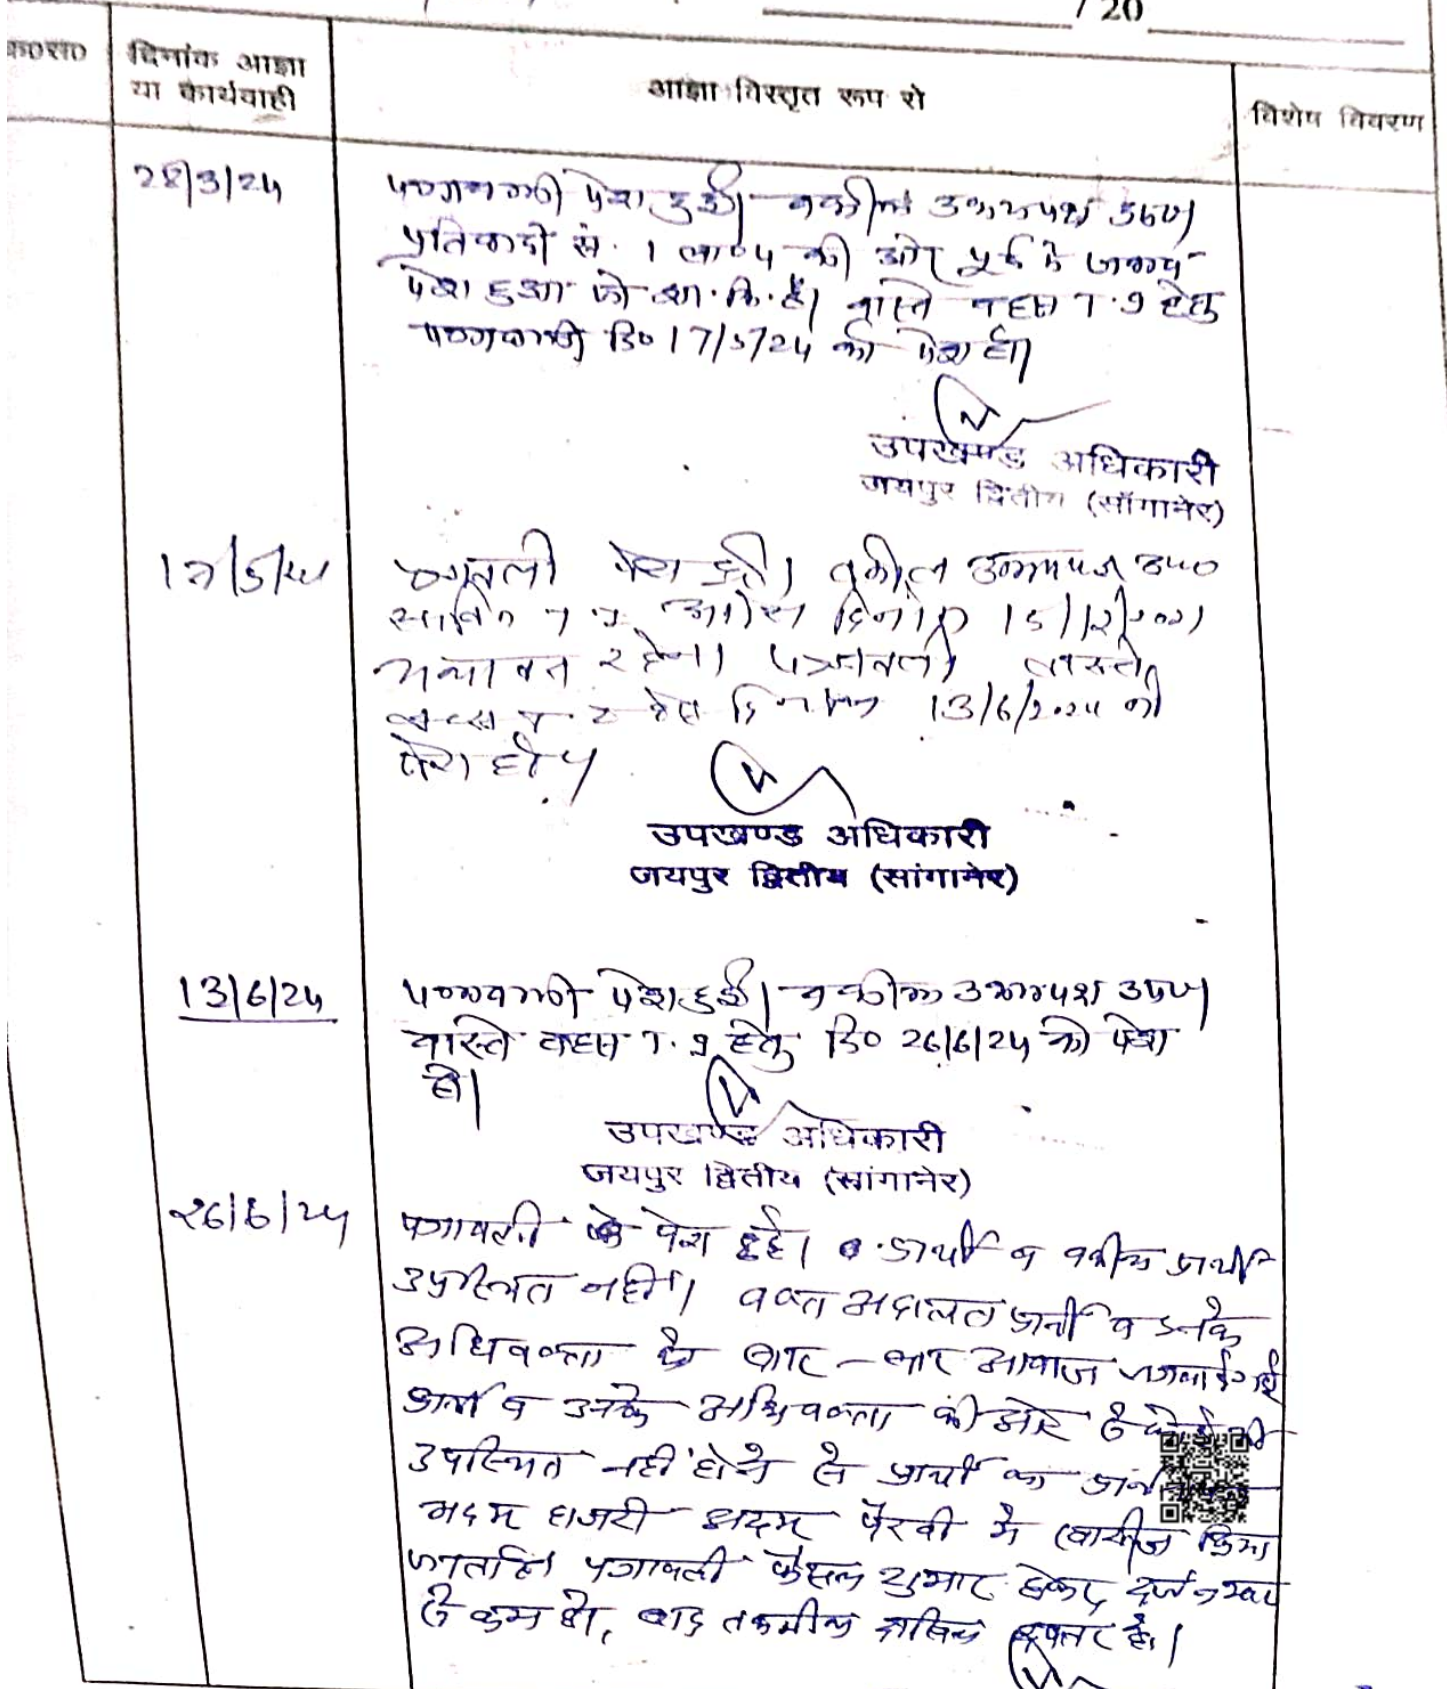 / 20
क्र0स0
दिनांक आज्ञा
या कार्यवाही
आज्ञा विस्तृत रूप से
विशेष विवरण
28/3/24
पत्रावली पेश हुई। वकील उभयपक्ष उप०।
प्रतिवादी सं. 1 की ओर पूर्व में जवाब
पेश हुआ जो शा.मि. है। वास्ते बहस T.I हेतु
पत्रावली दि० 17/5/24 को पेश हो।
उपखण्ड अधिकारी
जयपुर द्वितीय (सॉंगानेर)
17/5/24
पत्रावली पेश हुई। वकील उभयपक्ष उप०
दिनांक 15/12/2021
यथावत रहेगा। पत्रावली वास्ते
बहस हेतु दिनांक 13/6/2024 को
पेश होवे।
उपखण्ड अधिकारी
जयपुर द्वितीय (सांगानेर)
13/6/24
पत्रावली पेश हुई। वकील उभयपक्ष उप०।
वास्ते बहस T.I हेतु दि० 26/6/24 को पेश
हो।
उपखण्ड अधिकारी
जयपुर द्वितीय (सांगानेर)
26/6/24
पत्रावली पेश हुई। प्रार्थी व वकील प्रार्थी
उपस्थित नहीं। वक्त अदालत प्रार्थी व उनके
अधिवक्ता को बार-बार आवाज लगवाई गई
प्रार्थी व उनके अधिवक्ता की ओर से कोई भी
उपस्थित नहीं होने से प्रार्थी का
अदम हाजरी अदम पैरवी में खारीज किया
जाता है। पत्रावली फैसल शुमार होकर दर्ज नम्बर
से कम हो, बाद तकमील दाखिल दफ्तर हो।